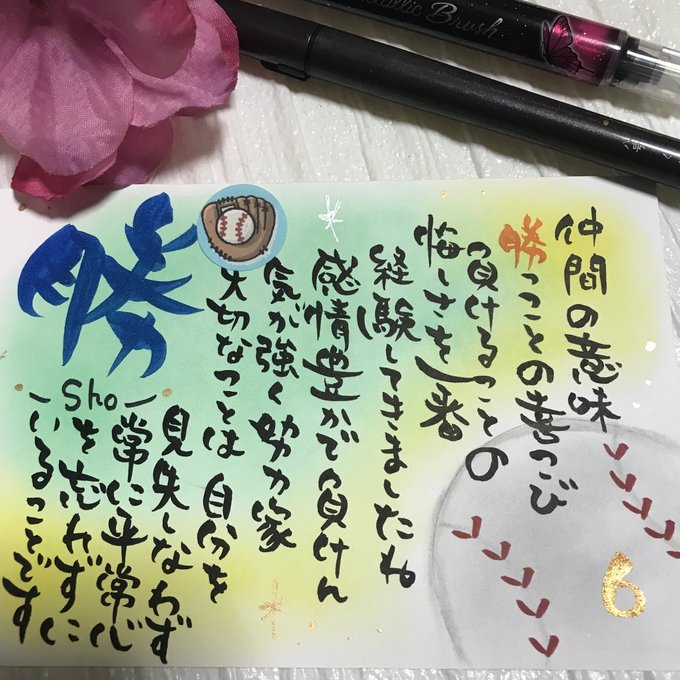 Metallic Brush
仲間の意味
勝つことの喜つび
負けることの
悔しさを一番
経験してきましたね
感情豊かで負けん
気が強く努力家
大切なことは 自分を
見失しなわず
常に平常心
を忘れずに
いることです
勝
-Sho-
6